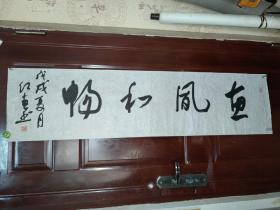 惠風和暢
戊戌夏月